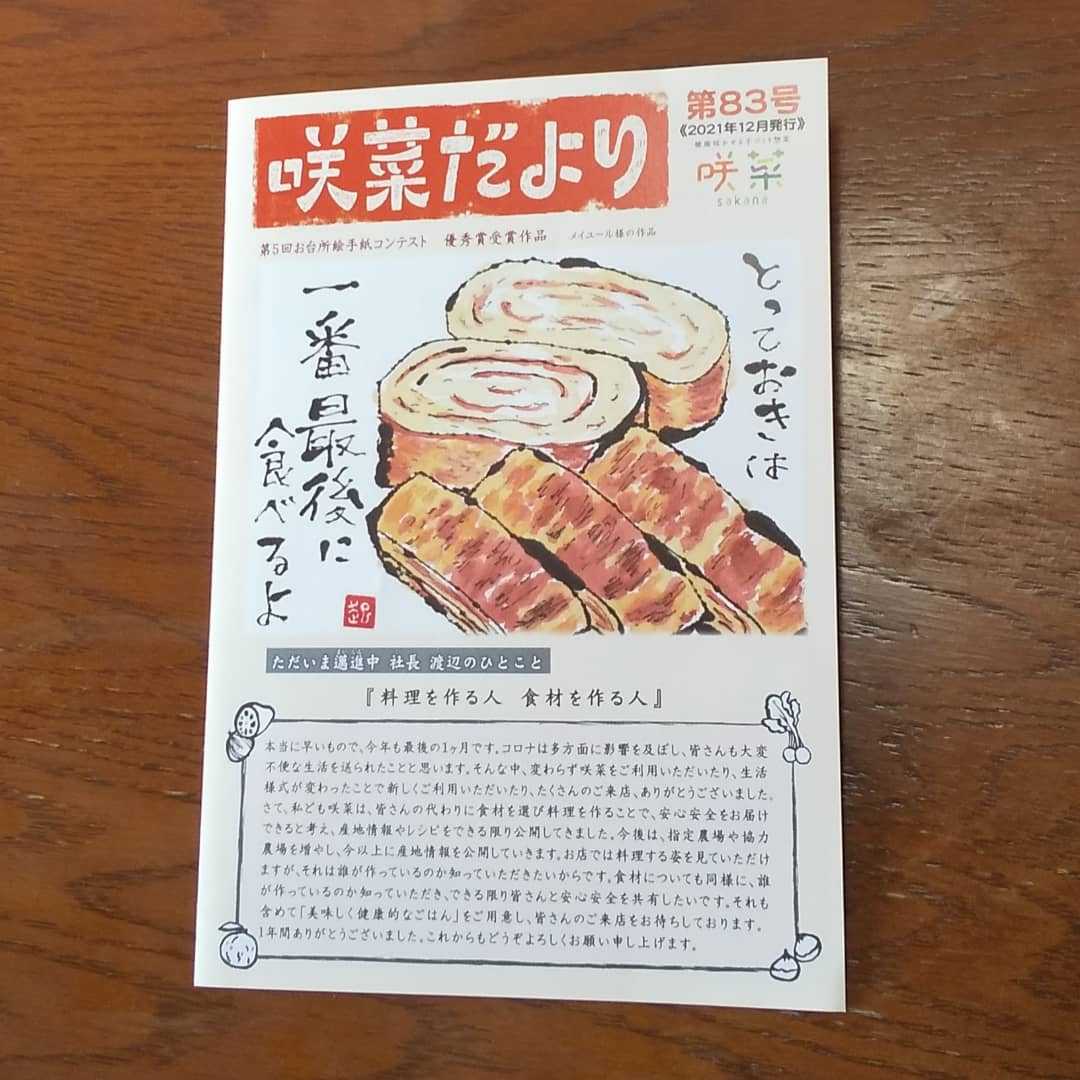 咲菜だより
第83号
《2021年12月発行》
咲菜
sakana
第5回お台所絵手紙コンテスト 優秀賞受賞作品 メイユール様の作品
とっておきは
一番最後に
食べるよ
ただいま邁進中 社長 渡辺のひとこと
『料理を作る人 食材を作る人』
本当に早いもので、今年も最後の1ヶ月です。コロナは多方面に影響を及ぼし、皆さんも大変
不便な生活を送られたことと思います。そんな中、変わらず咲菜をご利用いただいたり、生活
様式が変わったことで新しくご利用いただいたり、たくさんのご来店、ありがとうございました。
さて、私ども咲菜は、皆さんの代わりに食材を選び料理を作ることで、安心安全をお届け
できると考え、産地情報やレシピをできる限り公開してきました。今後は、指定農場や協力
農場を増やし、今以上に産地情報を公開していきます。お店では料理する姿を見ていただけ
ますが、それは誰が作っているのか知っていただきたいからです。食材についても同様に、誰
が作っているのか知っていただき、できる限り皆さんと安心安全を共有したいです。それも
含めて「美味しく健康的なごはん」をご用意し、皆さんのご来店をお待ちしております。
1年間ありがとうございました。これからもどうぞよろしくお願い申し上げます。